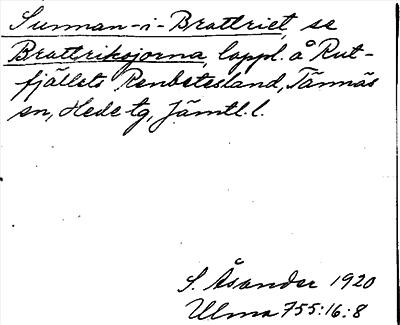 Sunnan-i-Brattriet, se
Brattriksjorna, lappl. å Rut-
fjällets Renbetesland, Tännäs
sn, Hede tg, Jämtl. l.
S. Åsander 1920
Ulma 755:16:8